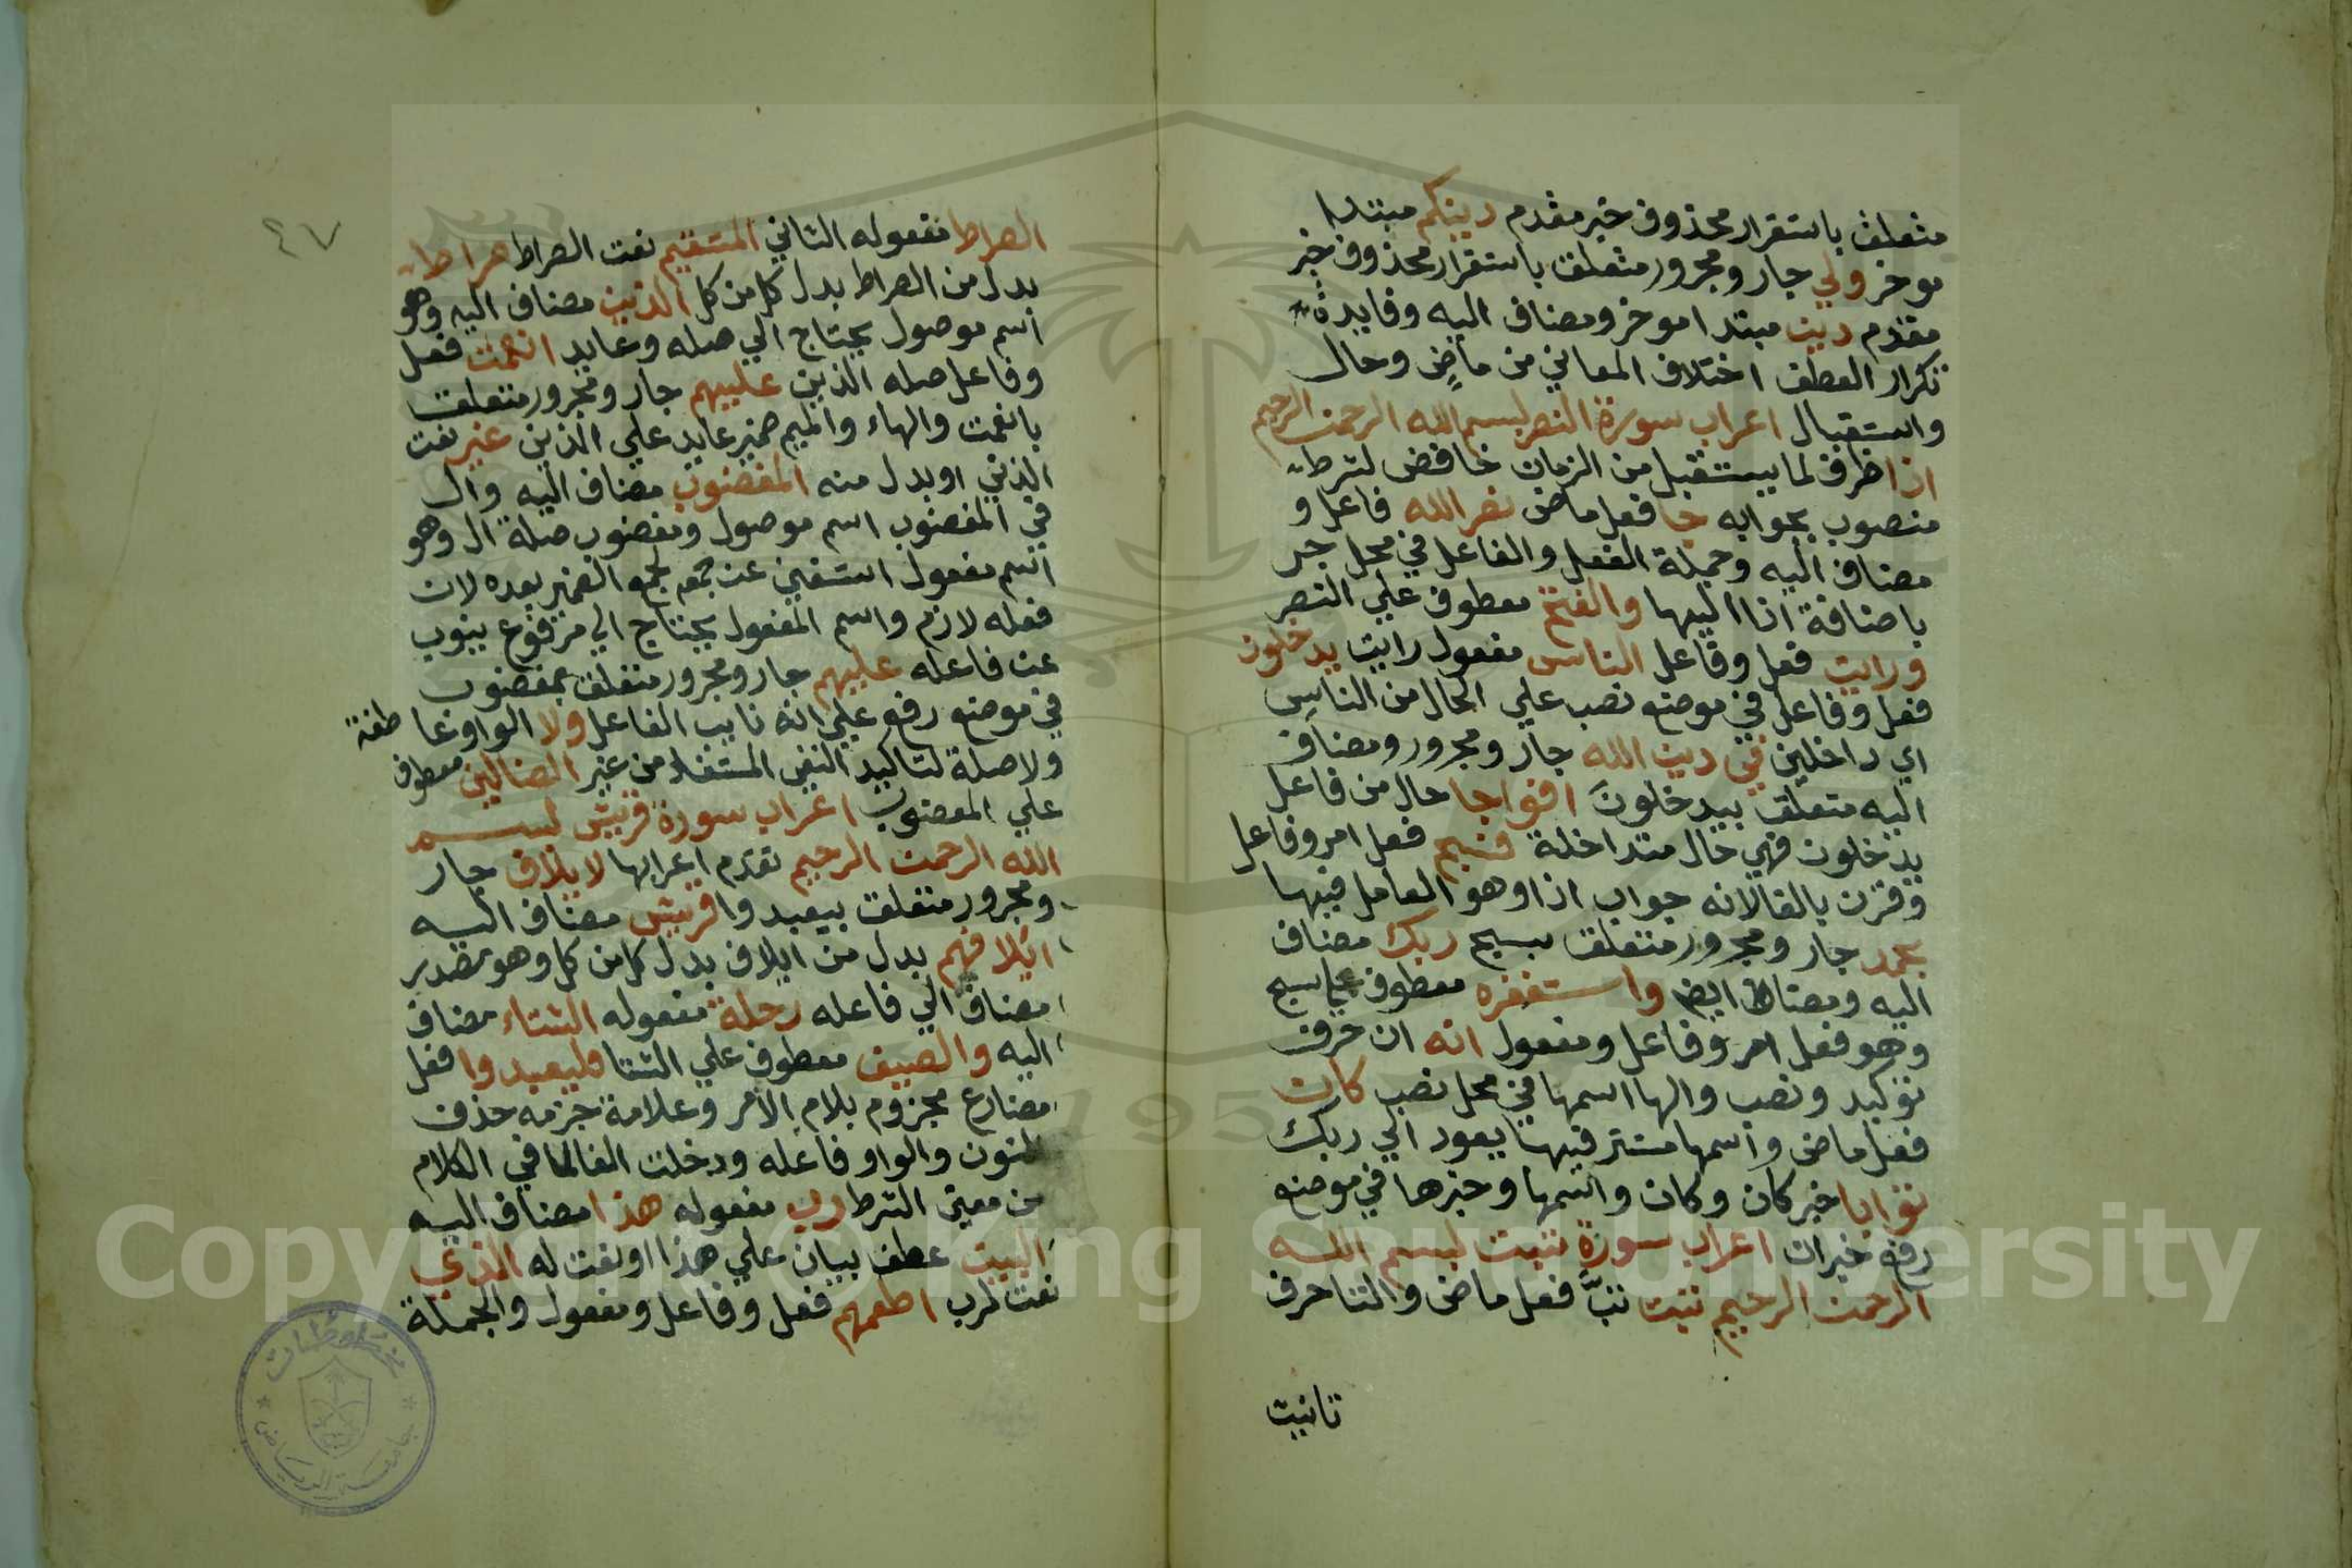 متعلق باستقرار محذوف خبر مقدم دينكم مبتدا
موخر ولي جار ومجرور متعلق باستقرار محذوف خبر
مقدم دين مبتدا موخر ومضاف اليه وفايدة
تكرار العطف اختلاف المعاني من ماضٍ وحال
واستقبال اعراب سورة النصر بسم الله الرحمن الرحيم
اذا ظرف لما يستقبل من الزمان خافض لشرطه
منصوب بجوابه جا فعل ماض نصر الله فاعل و
مضاف اليه وجملة الفعل والفاعل في محل جر
باضافة اذا اليها والفتح معطوف علي النصر
ورايت فعل وفاعل الناس مفعول رايت يدخلون
فعل وفاعل في موضع نصب علي الحال من الناس
اي داخلين في دين الله جار ومجرور ومضاف
اليه متعلق بيدخلون افواجا حال من فاعل
يدخلون فهي حال متداخلة فسبح فعل امر وفاعل
وقرن بالفا لانه جواب اذا وهو العامل فيها
بحمد جار ومجرور متعلق بسبح ربك مضاف
اليه ومضاف ايضا واستغفره معطوف علي سبح
وهو فعل امر وفاعل ومفعول انه ان حرف
توكيد ونصب والها اسمها في محل نصب كان
فعل ماض واسمها مستتر فيها يعود الي ربك
توابا خبر كان وكان واسمها وخبرها في موضع
رفع خبر ان اعراب سورة تبت بسم الله
الرحمن الرحيم تبت تبَّ فعل ماض والتا حرف
تانيت
٤٧
الصراط مفعوله الثاني المستقيم نعت الصراط صراط
بدل من الصراط بدل كل من كل الذين مضاف اليه وهو
اسم موصول يحتاج الي صله وعايد انعمت فعل
وفاعل صله الذين عليهم جار ومجرور متعلق
بانعمت والهاء والميم ضمير عايد علي الذين غير نعت
الذين او بدل منه المغضوب مضاف اليه وال
في المغضوب اسم موصول ومغضوب صلة ال وهو
اسم مفعول استغني عن جمعه لجمع الضمير بعده لان
فعله لازم واسم المفعول يحتاج الي مرفوع ينوب
عن فاعله عليهم جار ومجرور متعلق بمغضوب
في موضع رفع علي انه نايب الفاعل ولا الواو عاطفة
ولا صلة لتاكيد النفي المستفاد من غير الضالين معطوف
علي المغضوب اعراب سورة قريش بسم
الله الرحمن الرحيم تقدم اعرابها لايلاف جار
ومجرور متعلق بيعبدوا قريش مضاف اليه
ايلافهم بدل من ايلاف بدل كل من كل وهو مصدر
مضاف الي فاعله رحلة مفعوله الشتاء مضاف
اليه والصيف معطوف علي الشتا فليعبدوا فعل
مضارع مجزوم بلام الامر وعلامة جزمه حذف
النون والواو فاعله ودخلت الفا لما في الكلام
من معني الشرط رب مفعوله هذا مضاف اليه
البيت عطف بيان علي هذا او نعت له الذي
نعت لرب اطعمهم فعل وفاعل ومفعول والجملة
مخطوطات
جامعة الرياض
Copyright © King Saud University
195